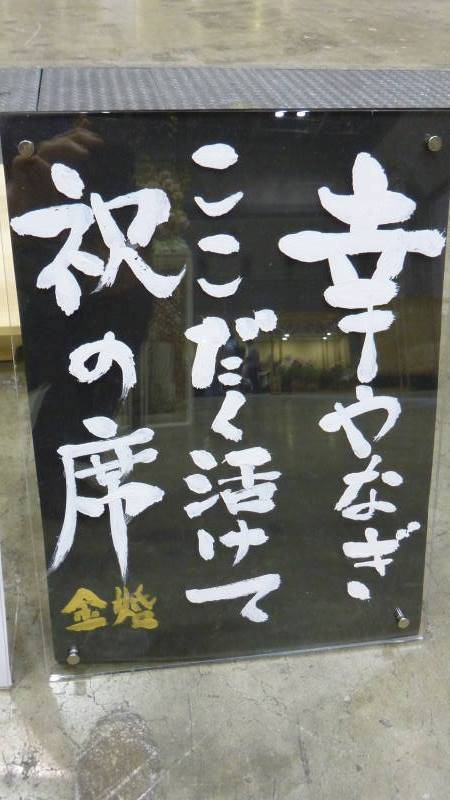 幸やなぎ
ここだく活けて
祝の席
金婚